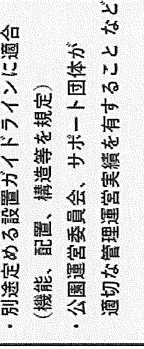 ・別途定める設置ガイドラインに適合
（機能、配置、構造等を規定）
・公園運営委員会、サポート団体が
適切な管理運営実績を有すること など